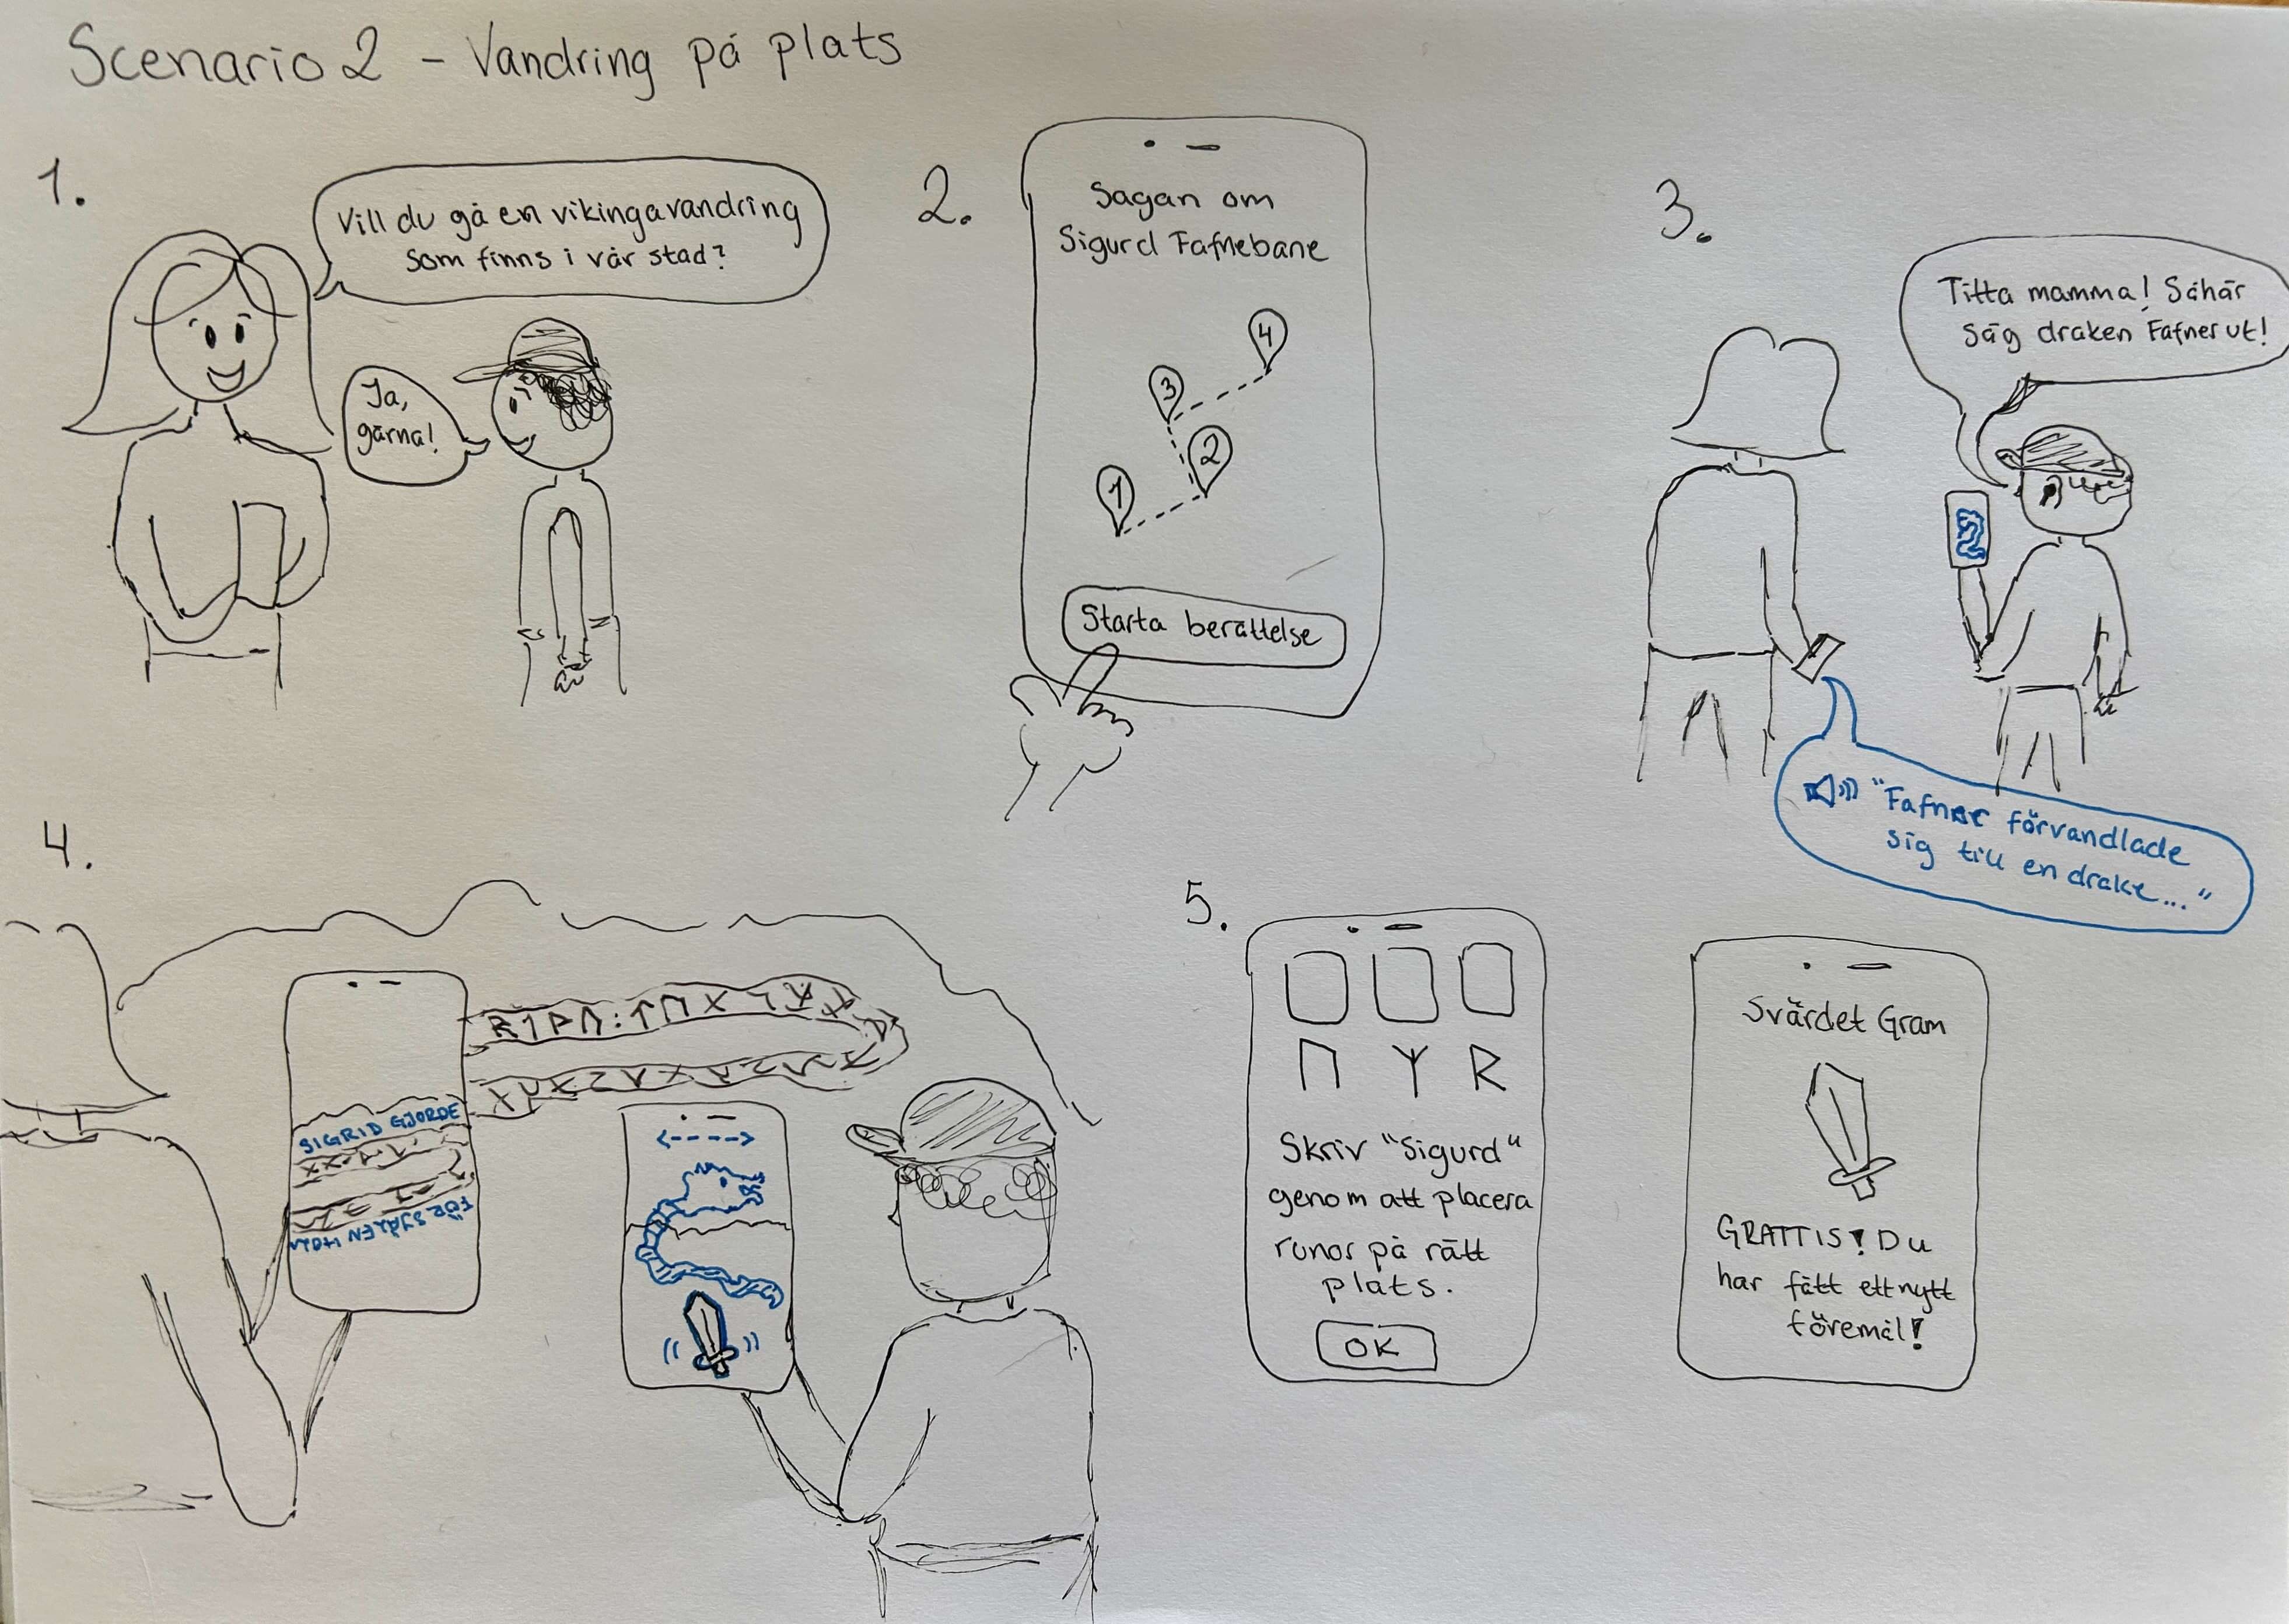 Scenario 2 - Vandring på plats
1.
Vill du gå en vikingavandring
som finns i vår stad?
Ja,
gärna!
2.
Sagan om
Sigurd Fafnebane
4
3
2
1
Starta berättelse
3.
Titta mamma! Såhär
såg draken Fafner ut!
"Fafner förvandlade
sig till en drake..."
4.
SIGRID GJORDE
FÖR SJÄLEN HOLM
5.
ᚢ ᛉ ᚱ
Skriv "Sigurd"
genom att placera
runor på rätt
plats.
OK
Svärdet Gram
GRATTIS! Du
har fått ett nytt
föremål!